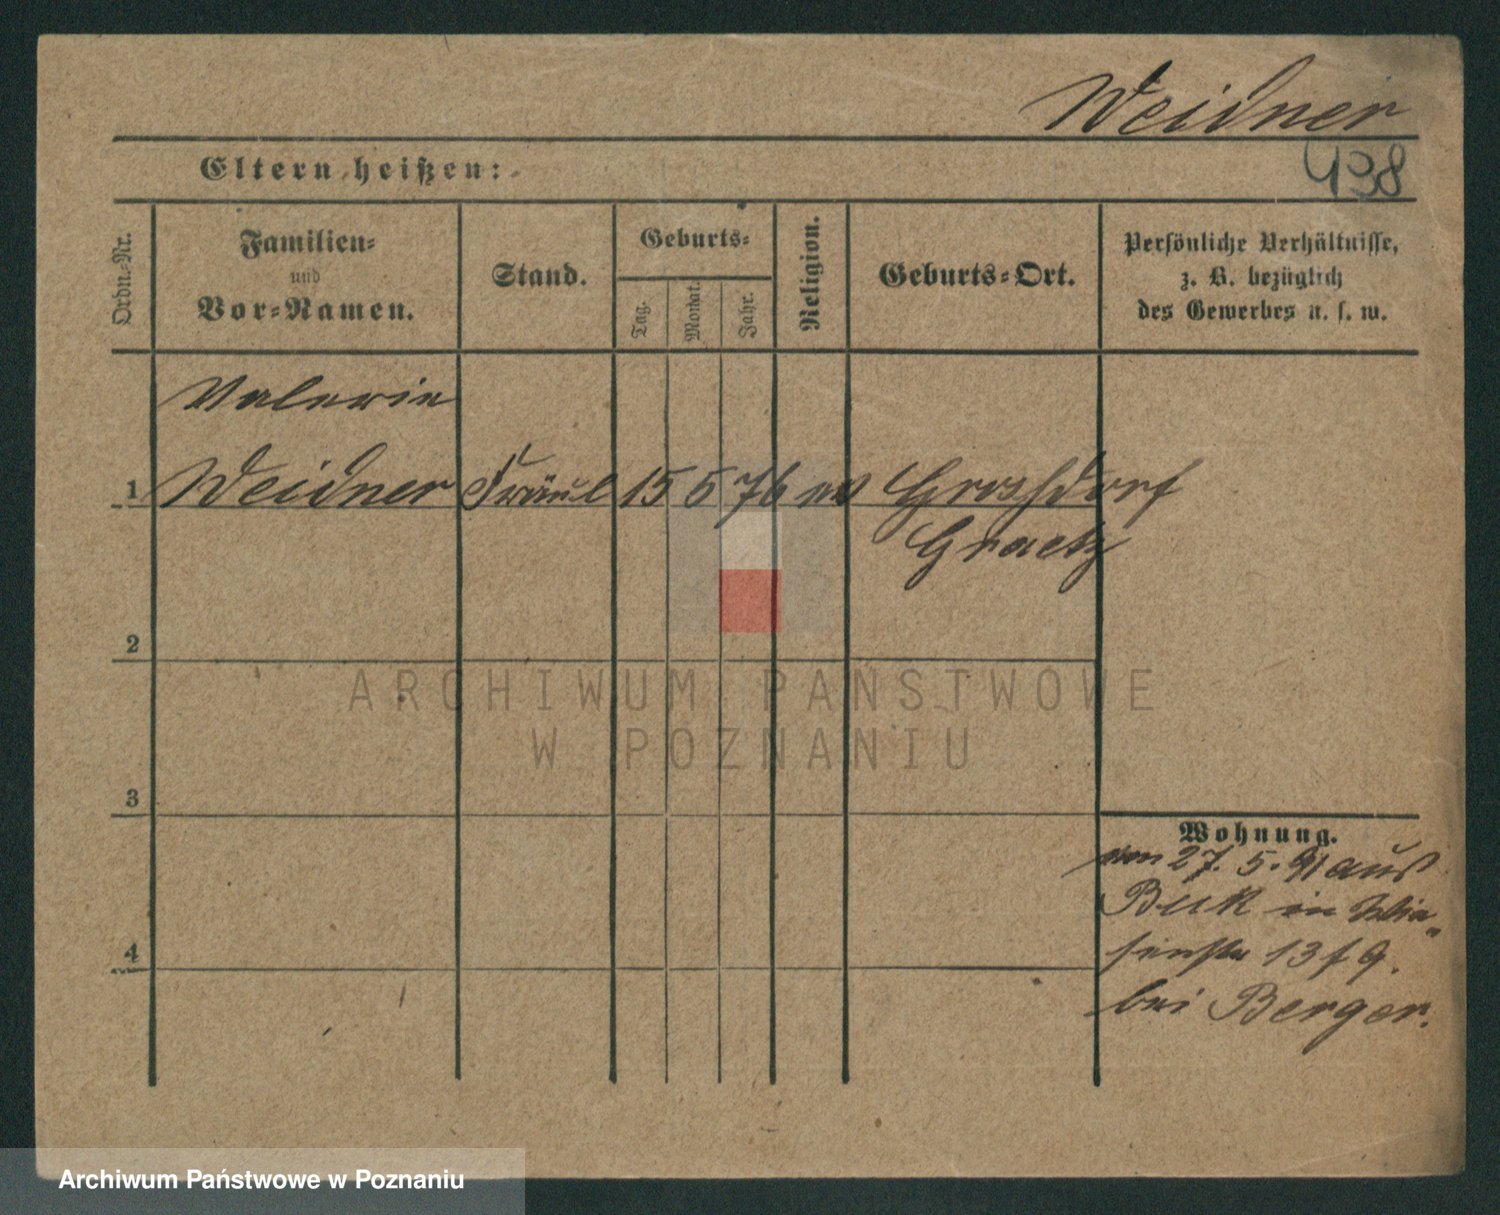 Weidner
Eltern heißen:
438
Ordn.-Nr.
Familien-
und
Vor-Namen.
Stand.
Geburts-
Tag.
Monat.
Jahr.
Religion.
Geburts-Ort.
Persönliche Verhältnisse,
z. B. bezüglich
des Gewerbes u. s. w.
Valerie
1 Weidner Fräul 15 5 76 Grossdorf
Graetz
2
ARCHIWUM PAŃSTWOWE
W POZNANIU
3
Wohnung.
27. 5. 91 aus
Buk in
13
4
bei Berger.
Archiwum Państwowe w Poznaniu